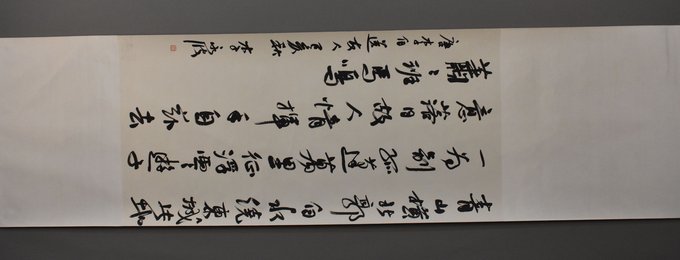 青山橫北郭白水遶東城此地
一為別孤蓬萬里征浮雲遊子
意落日故人情揮手自茲去
蕭〻班馬鳴
唐李白送友人 亥秋 李